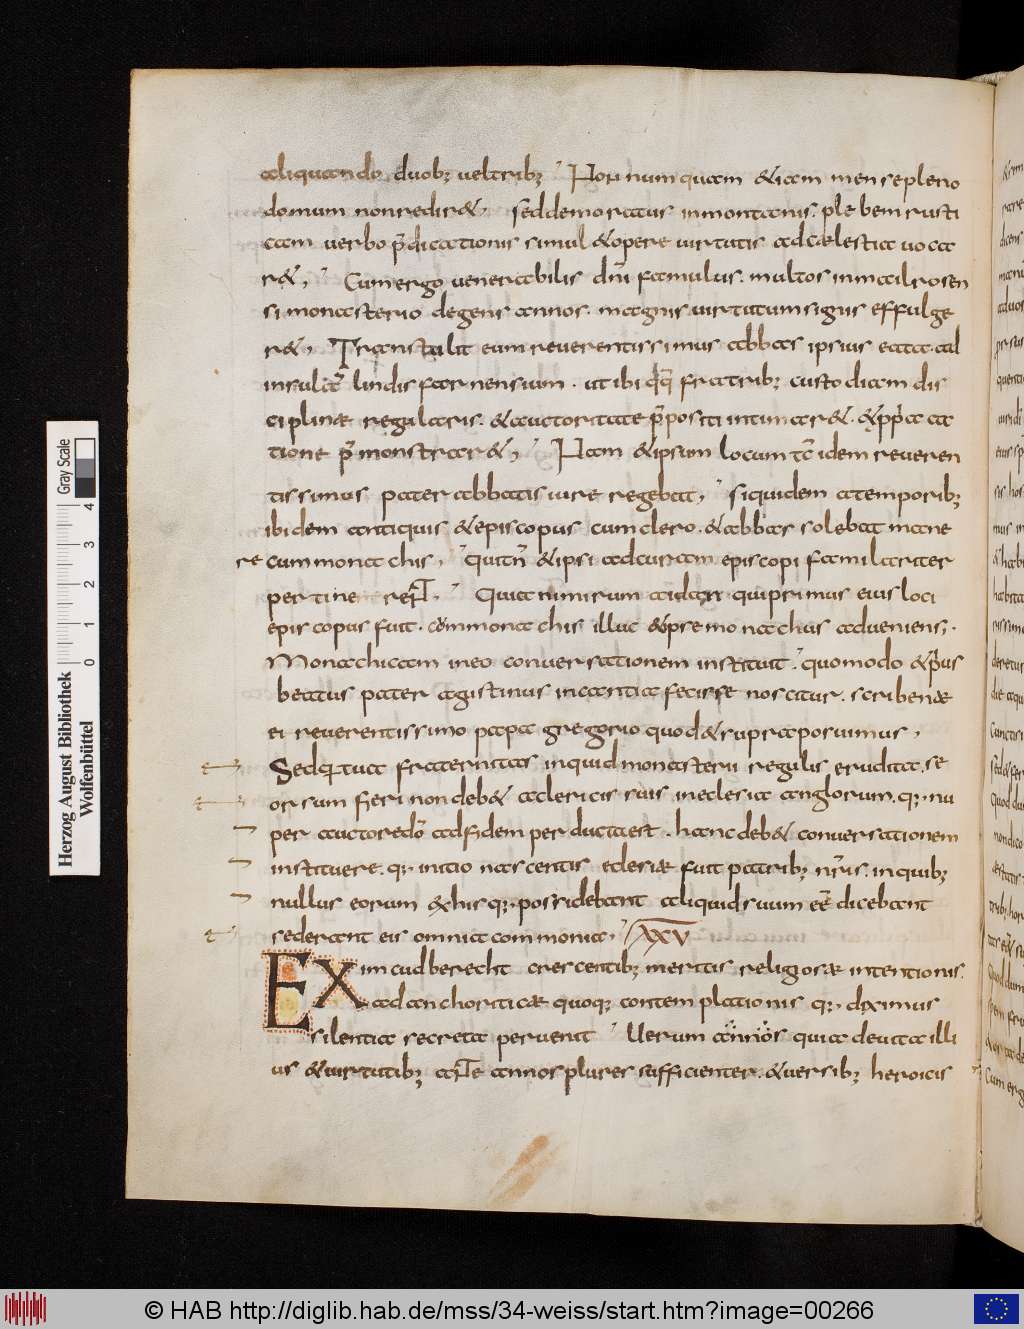 aliquando duob; vel trib; Non numquam & iam mense pleno
domum non redir&, sed demoratus in montanis. plebem rusti
cam verbo p̄dicationis simul & opere virtutis ad cælestia uoca
r&, Cum ergo venerabilis dn̄i famulus. multos in mailrosen
si monasterio degens annos. magnis uirtutum signis effulge
r&, Transtulit eum reverentissimus abbas ipsius eata. ad
insulā lindisfarnensium. ut ibi q̄q̄ fratrib; custodiam dis
ciplinæ regularis. & auctoritate p̄positi intimar&. & p̄p̄a ac
tione p̄monstrar&, Nam & ipsum locum tc̄ idem reveren
tissimus pater abbatis iure regebat, siquidem a temporib;
ibidem antiquis & episcopus cum clero. & abbas solebat mane
re cum monachis, qui tn̄ & ipsi ad curam episcopi familariter
pertinerent. Quia nimirum aidan qui primus eius loci
episcopus fuit. cum monachis illuc & ipse monachus adueniens,.
Monachicam in eo conuersationem instituit. quomodo & p̄us
beatus pater agustinus in cantia fecisse noscitur. scribente
ei reverentissimo papa gregorio quod & supra posuimus,
Sed q̄ tua fraternitas inquid monasterii regulis erudita. se
orsum fieri non deb& a clericis suis. in eclesia anglorum. q;. nu
per auctore dō ad fidem perducta est. hanc deb& conuersationem
instituere. q;. initio nascentis eclesiæ fuit patrib; nr̄is. in quib;
nullus eorum ex his q;. possidebant aliquid suum eē dicebant
sed erant eis omnia commonia, XXV
EX im cudberecht crescentib; meritis religiosæ intentionis.
ad anchoriticæ quoq; contemplationis q;. diximus
silentia secreta pervenit Uerum annos quia de uita illi
us & uirtutib; ante annos plures sufficienter. & uersib; heroicis
Herzog August Bibliothek
Wolfenbüttel
Gray Scale
0 1 2 3 4
© HAB http://diglib.hab.de/mss/34-weiss/start.htm?image=00266